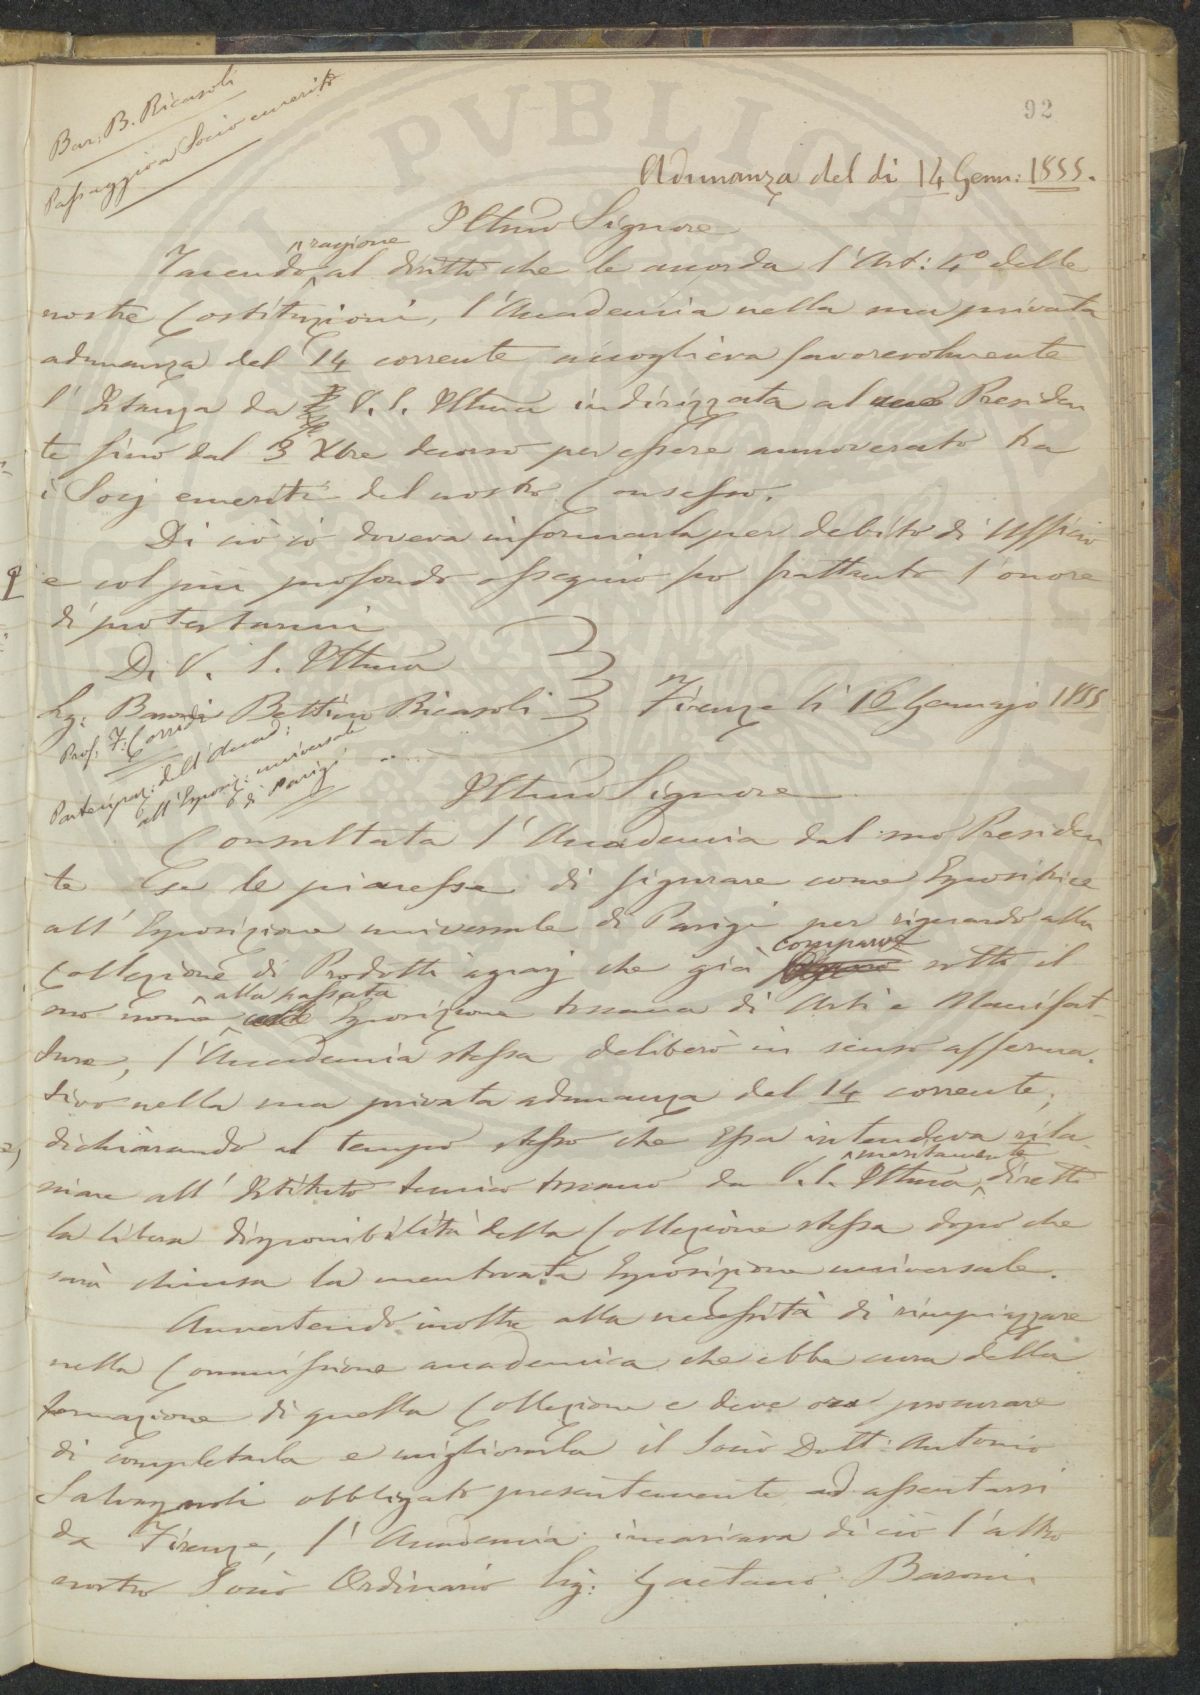 92
Bar: B. Ricasoli
Passaggio a Socio emerito
Adunanza del dì 14 Genn: 1855.
Illmo Signore
Facendo ragione al diritto che le accorda l'Art: 4º delle
nostre Costituzioni, l'Accademia nella sua privata
adunanza del 14 corrente accoglieva favorevolmente
l'Istanza da V. S. Illma indirizzata al Presiden
te fino dal 3 Xbre decorso per essere annoverato tra
i Socj emeriti del nostro Consesso.
Di ciò io doveva informarla per debito di Ufficio
e col più profondo ossequio ho frattanto l'onore
di protestarmi
Di V. S. Illma
Sig: Barone Bettino Ricasoli Firenze li 16 Gennajo 1855
Prof: F: Corridi
Partecipaz: dell'Accad:
all'Esposiz: universale
di Parigi
Illmo Signore
Consultata l'Accademia dal suo Presiden
te se le piacesse di figurare come Espositrice
all'Esposizione universale di Parigi per riguardo alla
Collezione di Prodotti agrarj che già comparve sotto il
suo nome alla passata Esposizione toscana di Arti e Manifat-
ture, l'Accademia stessa deliberò in senso afferma-
tivo nella sua privata adunanza del 14 corrente,
dichiarando al tempo stesso che Essa intendeva rila-
sciare all'Istituto tecnico toscano da V. S. Illma meritamente diretto
la libera disponibilità della Collezione stessa dopo che
sarà chiusa la mentovata Esposizione universale.
Avvertendo inoltre alla necessità di rimpiazzare
nella Commissione accademica che ebbe cura della
formazione di quella Collezione e deve ora procurare
di completarla e migliorarla il Socio Dott: Antonio
Salvagnoli obbligato presentemente ad assentarsi
da Firenze, l'Accademia incaricava di ciò l'altro
nostro Socio Ordinario Sig: Gaetano Baroni